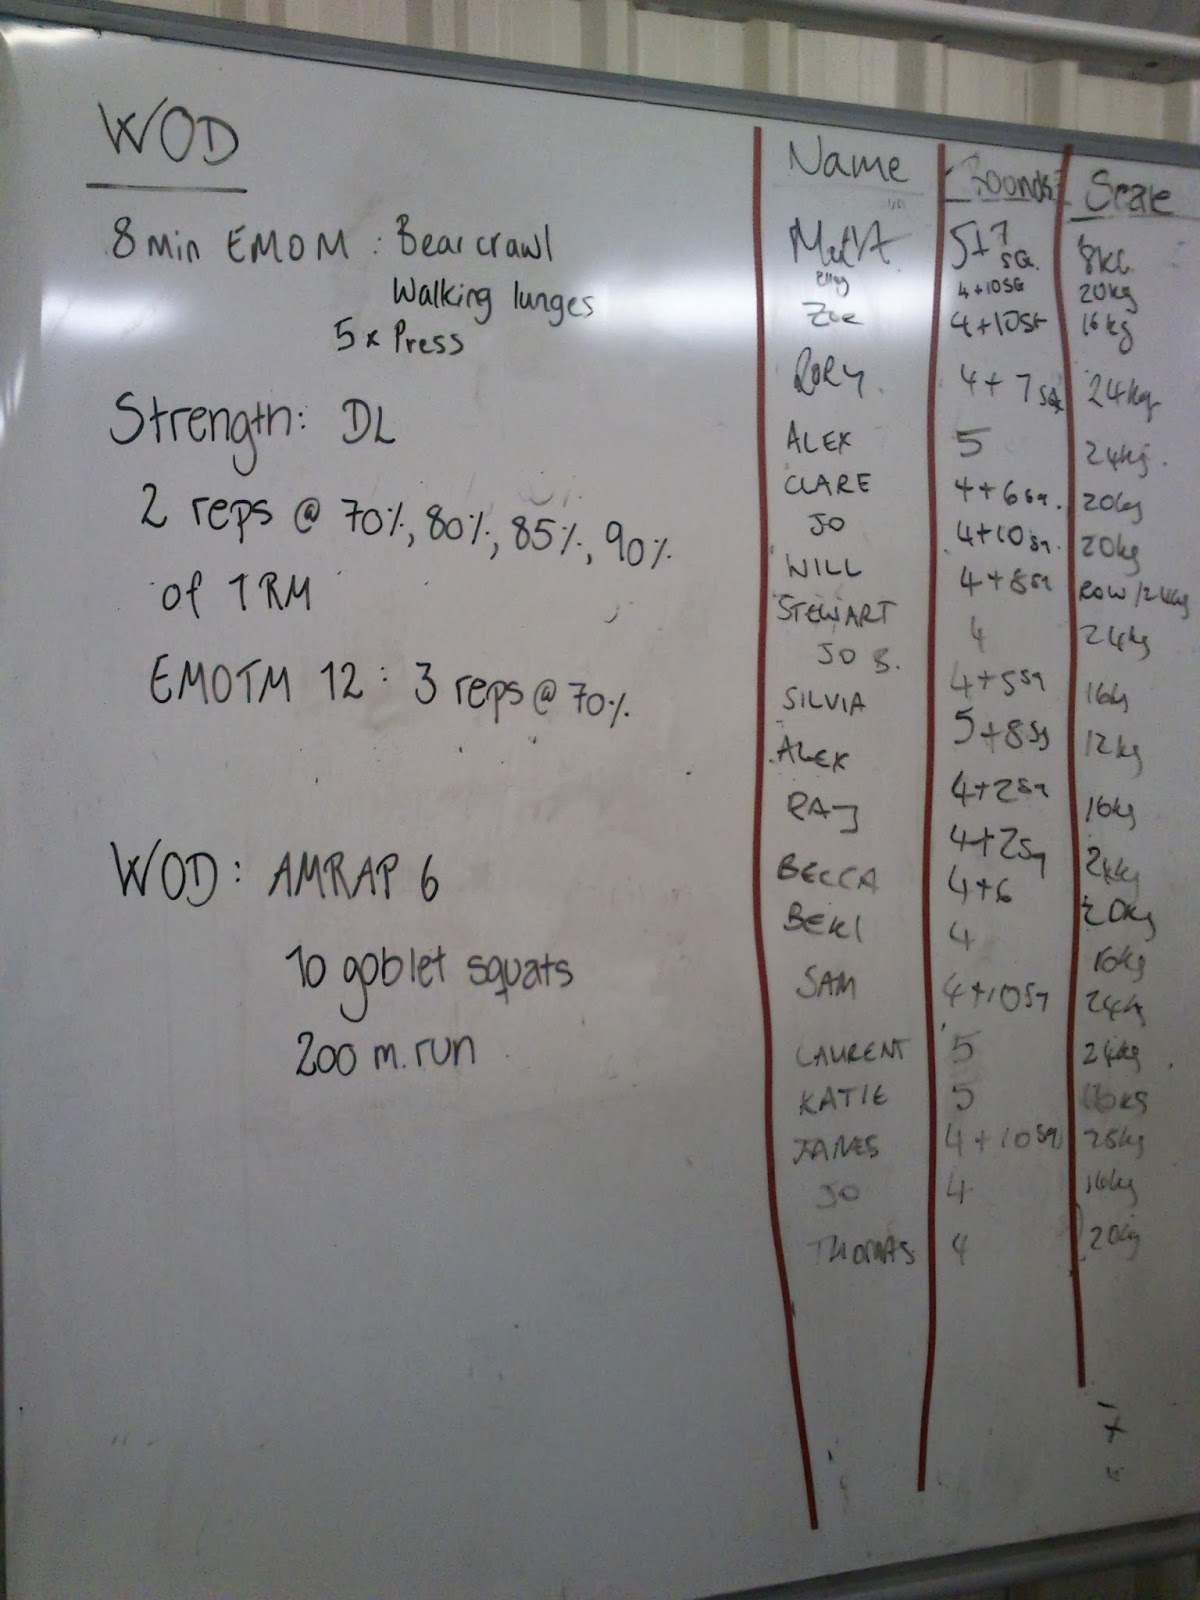 WOD
8 min EMOM : Bear crawl
Walking lunges
5 x Press
Strength: DL
2 reps @ 70%, 80%, 85%, 90%
of 1RM
EMOTM 12 : 3 reps @ 70%
WOD : AMRAP 6
10 goblet squats
200 m. run
Name Rounds Scale
5+7 SQ. 8KG
4+10SQ 20kg
Zoe 4+10SQ 16kg
RORY. 4+7SQ 24kg
ALEX 5 24kg.
CLARE 4+6sq. 20kg
JO 4+10sq. 20kg
WILL 4+8sq ROW/24kg
STEWART 4 24kg
JO B. 4+5sq 16kg
SILVIA 5+8sq 12kg
ALEX 4+2sq 16kg
RAJ 4+2sq 24kg
BECCA 4+6 20kg
4 16kg
SAM 4+10sq 24kg
LAURENT 5 24kg
KATIE 5 16kg
JAMES 4+10sq 28kg
JO 4 16kg
THOMAS 4 20kg